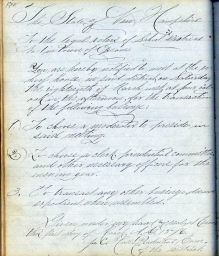 The State of New Hampshire
To the legal voters of School District no
You are hereby notified to meet at the school
house in said district on Saturday
the eighteenth of March next at four o'clock
in the afternoon for the transaction
of the following business
1. To choose a moderator to preside in
said meeting
2. To choose a clerk, prudential committee
and other necessary officers for the
ensuing year.
3. To transact any other business deemed
expedient when assembled.
Given under my hand
the first day of
Prudential Com.
of the district